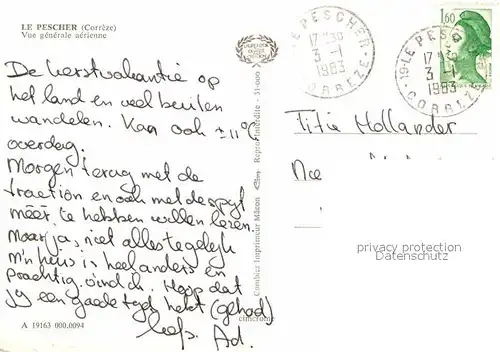 LE PESCHER (Corrèze)
Vue générale aérienne
De kerstvakantie op
het land en veel buiten
wandelen. Kan ook ± 11°C
overdag.
Morgen terug met de
traction en ook met de spijt
méér te hebben willen lezen.
Maar ja, niet alles tegelijk
M'n huis is heel anders en
prachtig. Hoop dat
jij een goede tijd hebt (gehad)
liefs Ad.
A 19163 000.0094
Combier Imprimeur Mâcon
Reproduction interdite - 51-000
cim
LE PESCHER
17 H 30
3 - 1
1983
CORREZE
1,60
19 - LE PESCHER
17 H 30
3 - 1
1983
CORREZE
Titia Hollander
privacy protection
Datenschutz